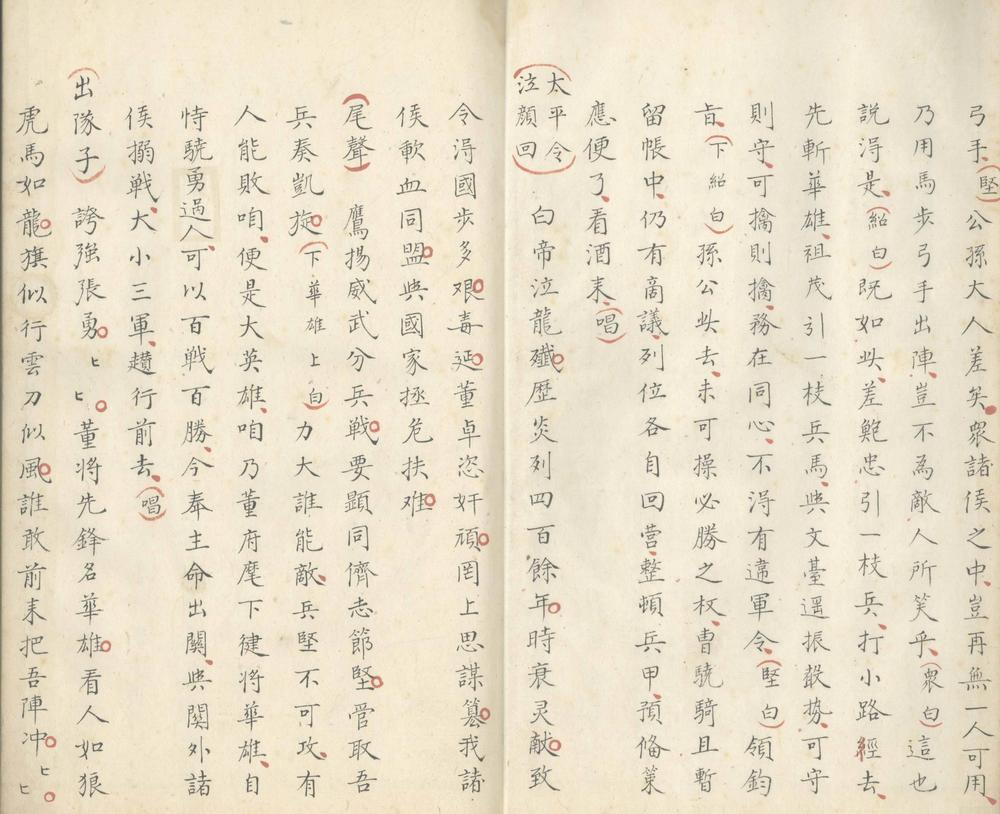 弓手、(堅)公孫大人差矣。衆諸侯之中、豈再無一人可用、
乃用馬步弓手出陣、豈不為敵人所笑乎、(衆白)這也
說淂是、(紹白)既如此、差鮑忠引一枝兵、打小路經去、
先斬華雄、祖茂引一枝兵馬、與文臺遥振聲势、可守
則守、可擒則擒、務在同心、不淂有違軍令、(堅白)領鈞
旨、(下紹白)孫公此去、未可操必勝之权、曹驍騎且暫
留帳中、仍有啇議、列位各自回营、整頓兵甲、預俻策
應便了、看酒来、(唱)
(太平令)
(泣顔回)白帝泣龍殲。歷炎列四百餘年。時衰灵献。致
令淂國步多艰。毒延。董卓恣奸頑。罔上思謀篡。我諸
侯軟血同盟。與國家拯危扶难。
(尾聲)鷹揚威武分兵戰。要顕同儕志節堅。管取吾
兵奏凱旋。(下華雄上白)力大誰能敵、兵堅不可攻、有
人能敗咱、便是大英雄、咱乃董府麾下徤將華雄、自
恃驍勇過人、可以百戰百勝、今奉主命出關、與關外諸
侯搦戰、大小三軍、趲行前去、(唱)
(出隊子)誇強張勇。匕匕。董将先鋒名華雄。看人如狼
虎馬如龍。旗似行雲刀似風。誰敢前来把吾陣冲。匕匕。